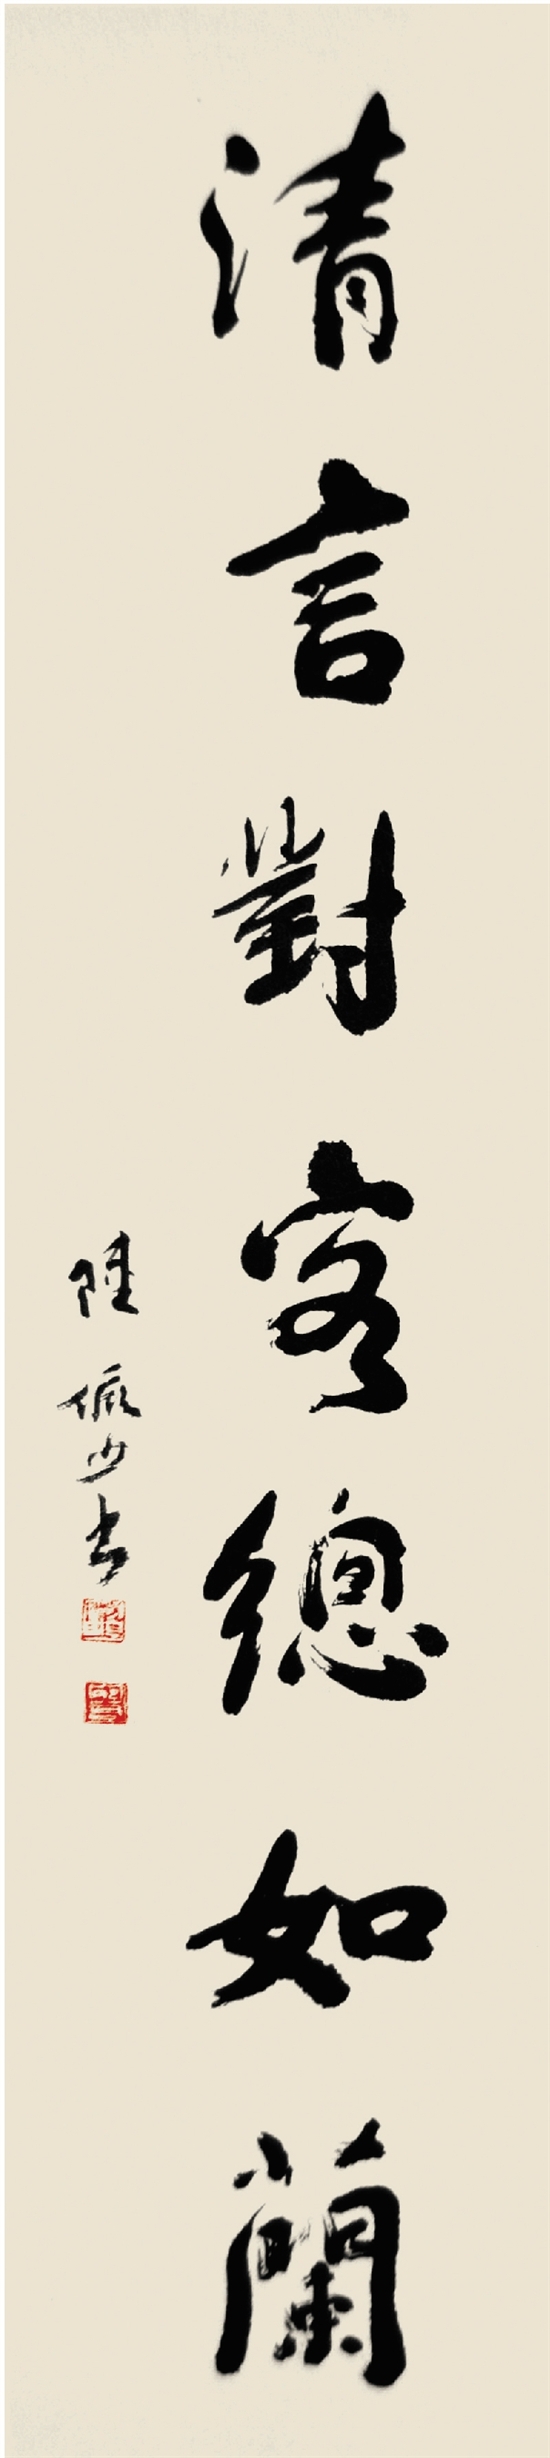 清言對客總如蘭
陸儼少書